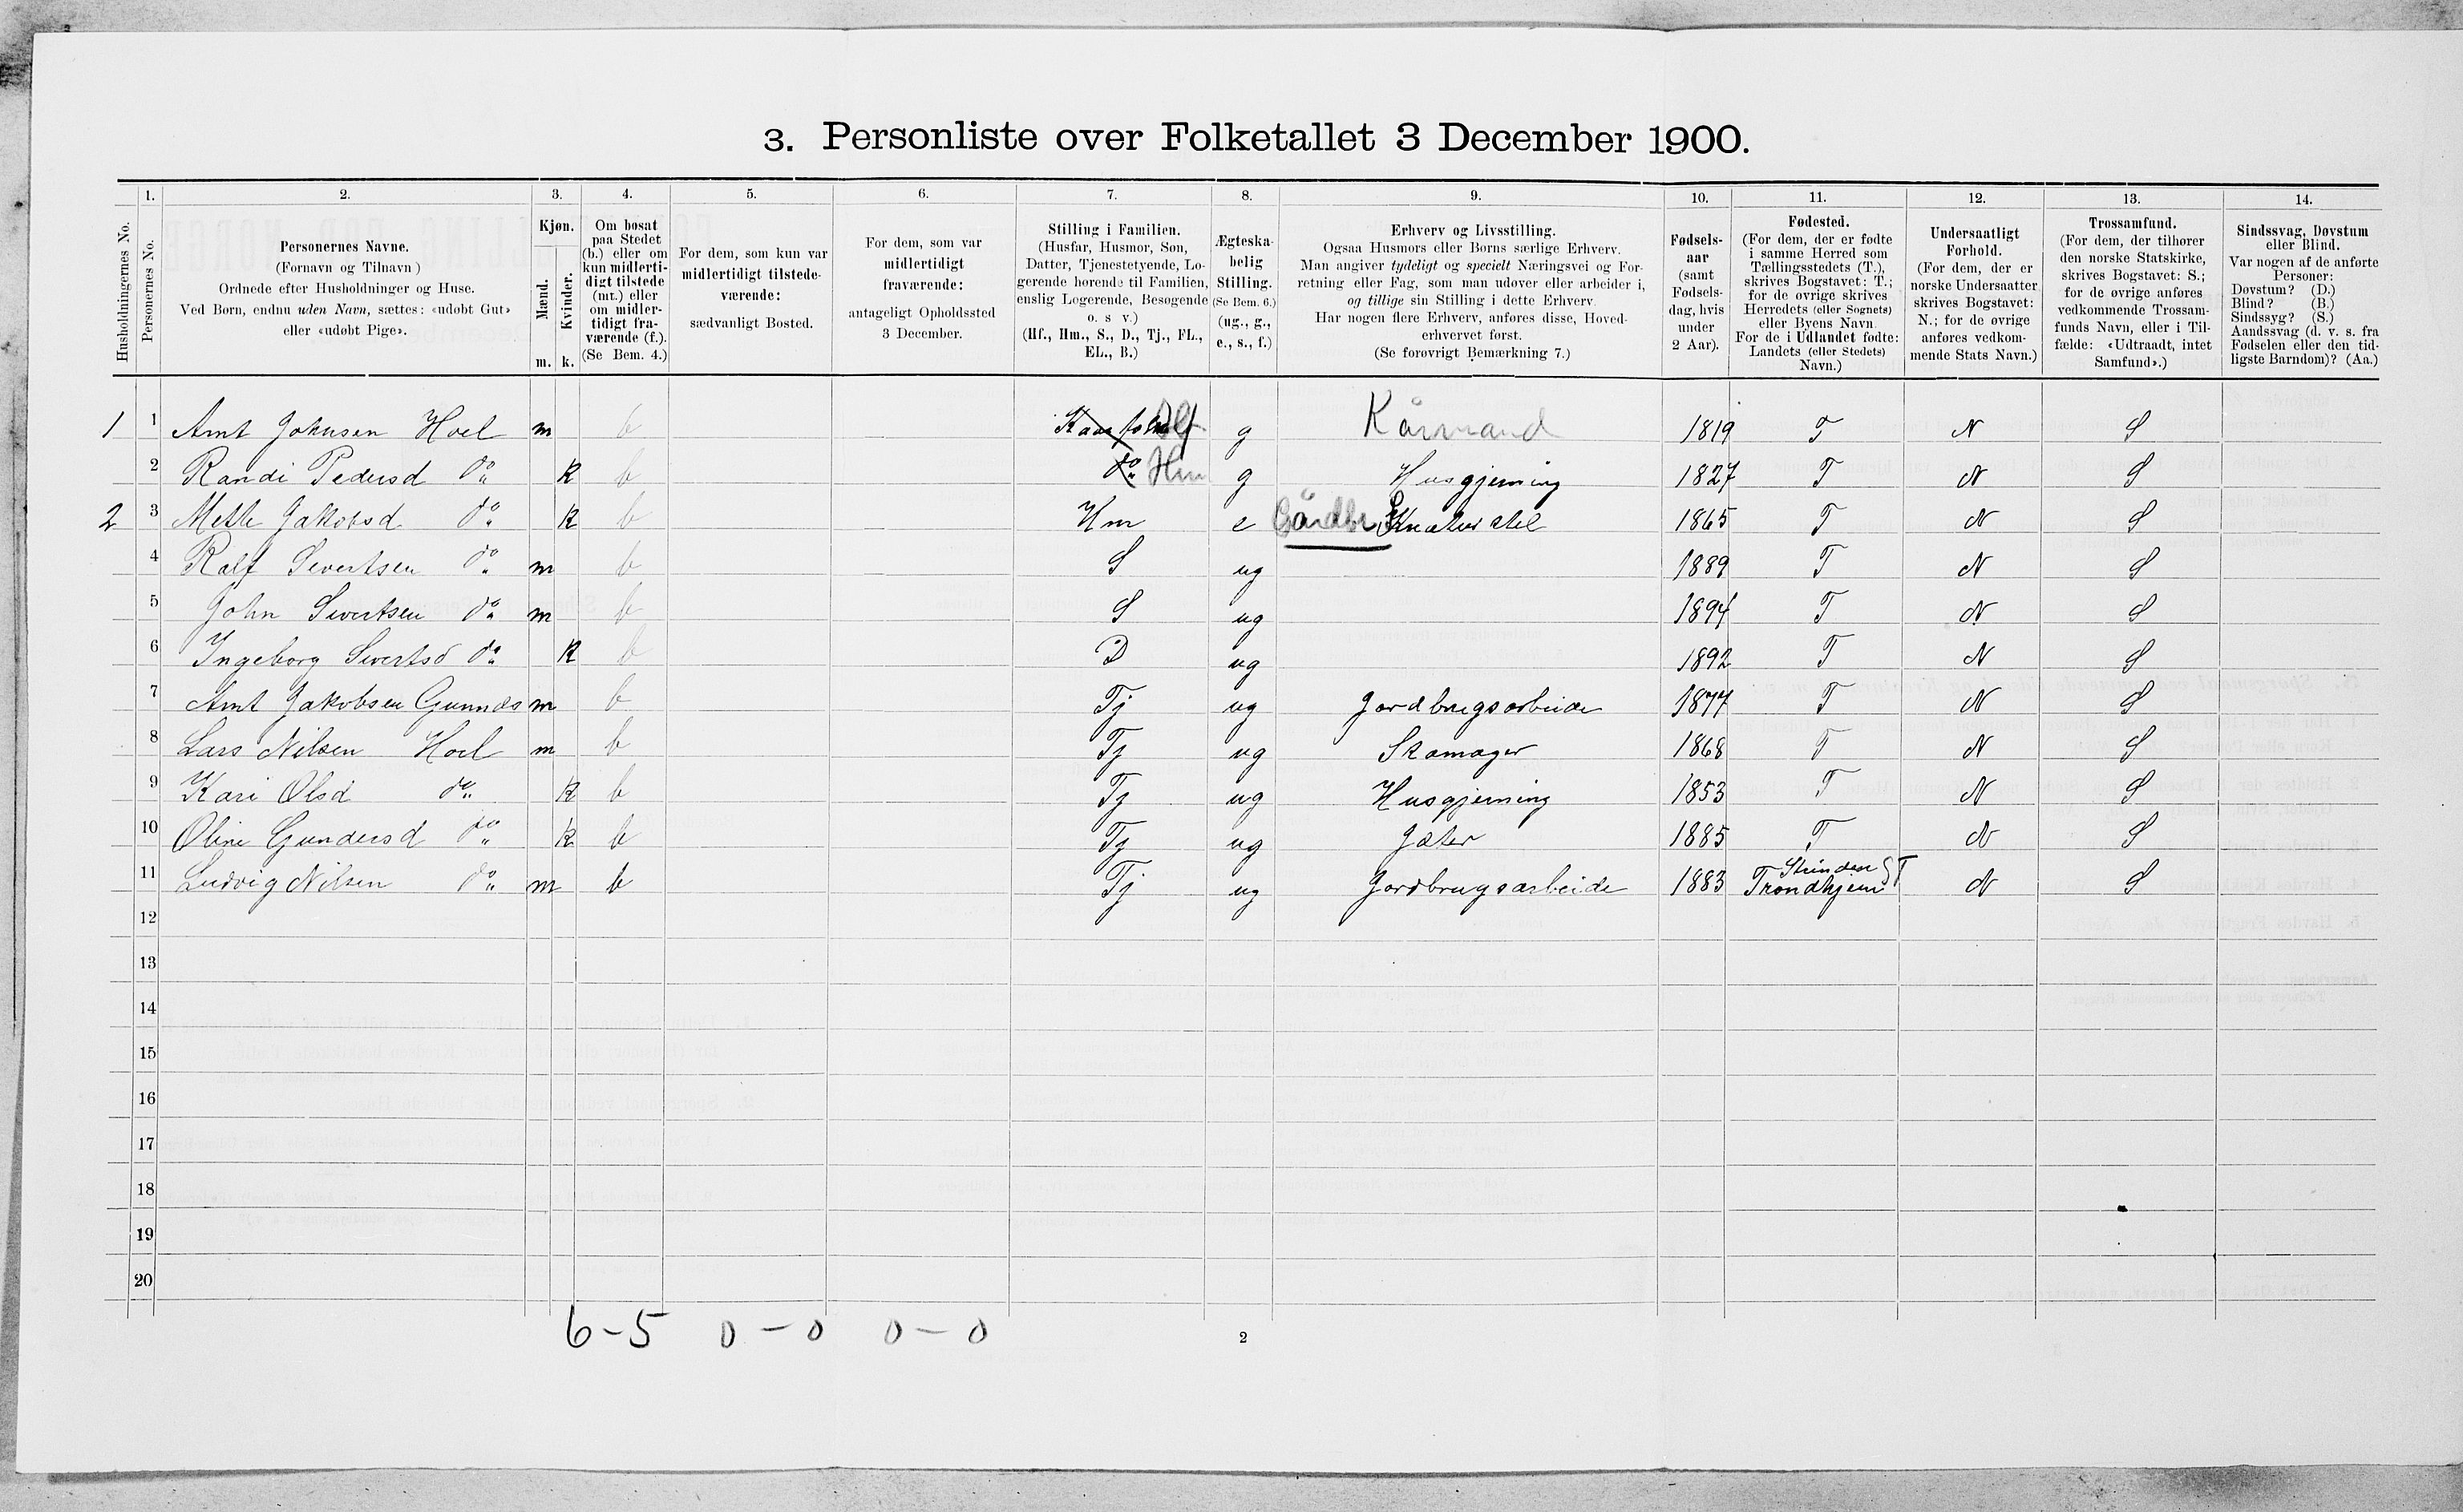 3. Personliste over Folketallet 3 December 1900.
1. 2. 3. 4. 5. 6. 7. 8. 9. 10. 11. 12. 13. 14.
Husholdningernes No.
Personernes No.
Personernes Navne.
(Fornavn og Tilnavn)
Ordnede efter Husholdninger og Huse.
Ved Børn, endnu uden Navn, sættes: «udøbt Gut»
eller «udøbt Pige».
Kjøn.
Mænd.
Kvinder.
m. k.
Om bosat
paa Stedet
(b.) eller om
kun midlerti-
digt tilstede
(mt.) eller
om midler-
tidigt fra-
værende (f.).
(Se Bem. 4.)
For dem, som kun var
midlertidigt tilstede-
værende:
sædvanligt Bosted.
For dem, som var
midlertidigt
fraværende:
antageligt Opholdssted
3 December.
Stilling i Familien.
(Husfar, Husmor, Søn,
Datter, Tjenestetyende, Lo-
gerende hørende til Familien,
enslig Logerende, Besøgende
o. s v.)
(Hf., Hm., S., D., Tj., FL.,
EL., B.)
Ægteska-
belig
Stilling.
(Se Bem. 6.)
(ug., g.,
e., s., f.)
Erhverv og Livsstilling.
Ogsaa Husmors eller Børns særlige Erhverv.
Man angiver tydeligt og specielt Næringsvei og For-
retning eller Fag, som man udøver eller arbeider i,
og tillige sin Stilling i dette Erhverv.
Har nogen flere Erhverv, anføres disse, Hoved-
erhvervet først.
(Se forøvrigt Bemærkning 7.)
Fødsels-
aar
(samt
Fødsels-
dag, hvis
under
2 Aar).
Fødested.
(For dem, der er fødte
i samme Herred som
Tællingsstedets (T.),
skrives Bogstavet: T.;
for de øvrige skrives
Herredets (eller Sognets)
eller Byens Navn.
For de i Udlandet fødte:
Landets (eller Stedets)
Navn.)
Undersaatligt
Forhold.
(For dem, der er
norske Undersaatter,
skrives Bogstavet:
N.; for de øvrige
anføres vedkom-
mende Stats Navn.)
Trossamfund.
(For dem, der tilhører
den norske Statskirke,
skrives Bogstavet: S.;
for de øvrige anføres
vedkommende Trossam-
funds Navn, eller i Til-
fælde: «Udtraadt, intet
Samfund».)
Sindssvag, Døvstum
eller Blind.
Var nogen af de anførte
Personer:
Døvstum? (D.)
Blind? (B.)
Sindssyg? (S.)
Aandssvag (d. v. s. fra
Fødselen eller den tid-
ligste Barndom)? (Aa.)
1 1 Arnt Johnsen Hoel m b Hf g Kårmand 1819 T N S
2 Randi Pedersd do k b do Hm g Husgjerning 1827 T N S
2 3 Mette Jakobsd do k b Hm e Gårdbr 1865 T N S
4 Ralf Sivertsen do m b S ug 1889 T N S
5 John Sivertsen do m b S ug 1894 T N S
6 Ingeborg Sivertsd do k b D ug 1892 T N S
7 Arnt Jakobsen m b Tj ug Jordbrugsarbeide 1877 T N S
8 Lars Nilsen Hoel m b Tj ug Skomager 1868 T N S
9 Kari Olsd do k b Tj ug Husgjerning 1853 T N S
10 Oline Gundersd do k b Tj ug Gjæter 1885 T N S
11 Ludvig Nilsen do m b Tj ug Jordbrugsarbeide 1883 Strinden ST Trondhjem N S
12
13
14
15
16
17
18
19
20
6-5 0-0 0-0
2